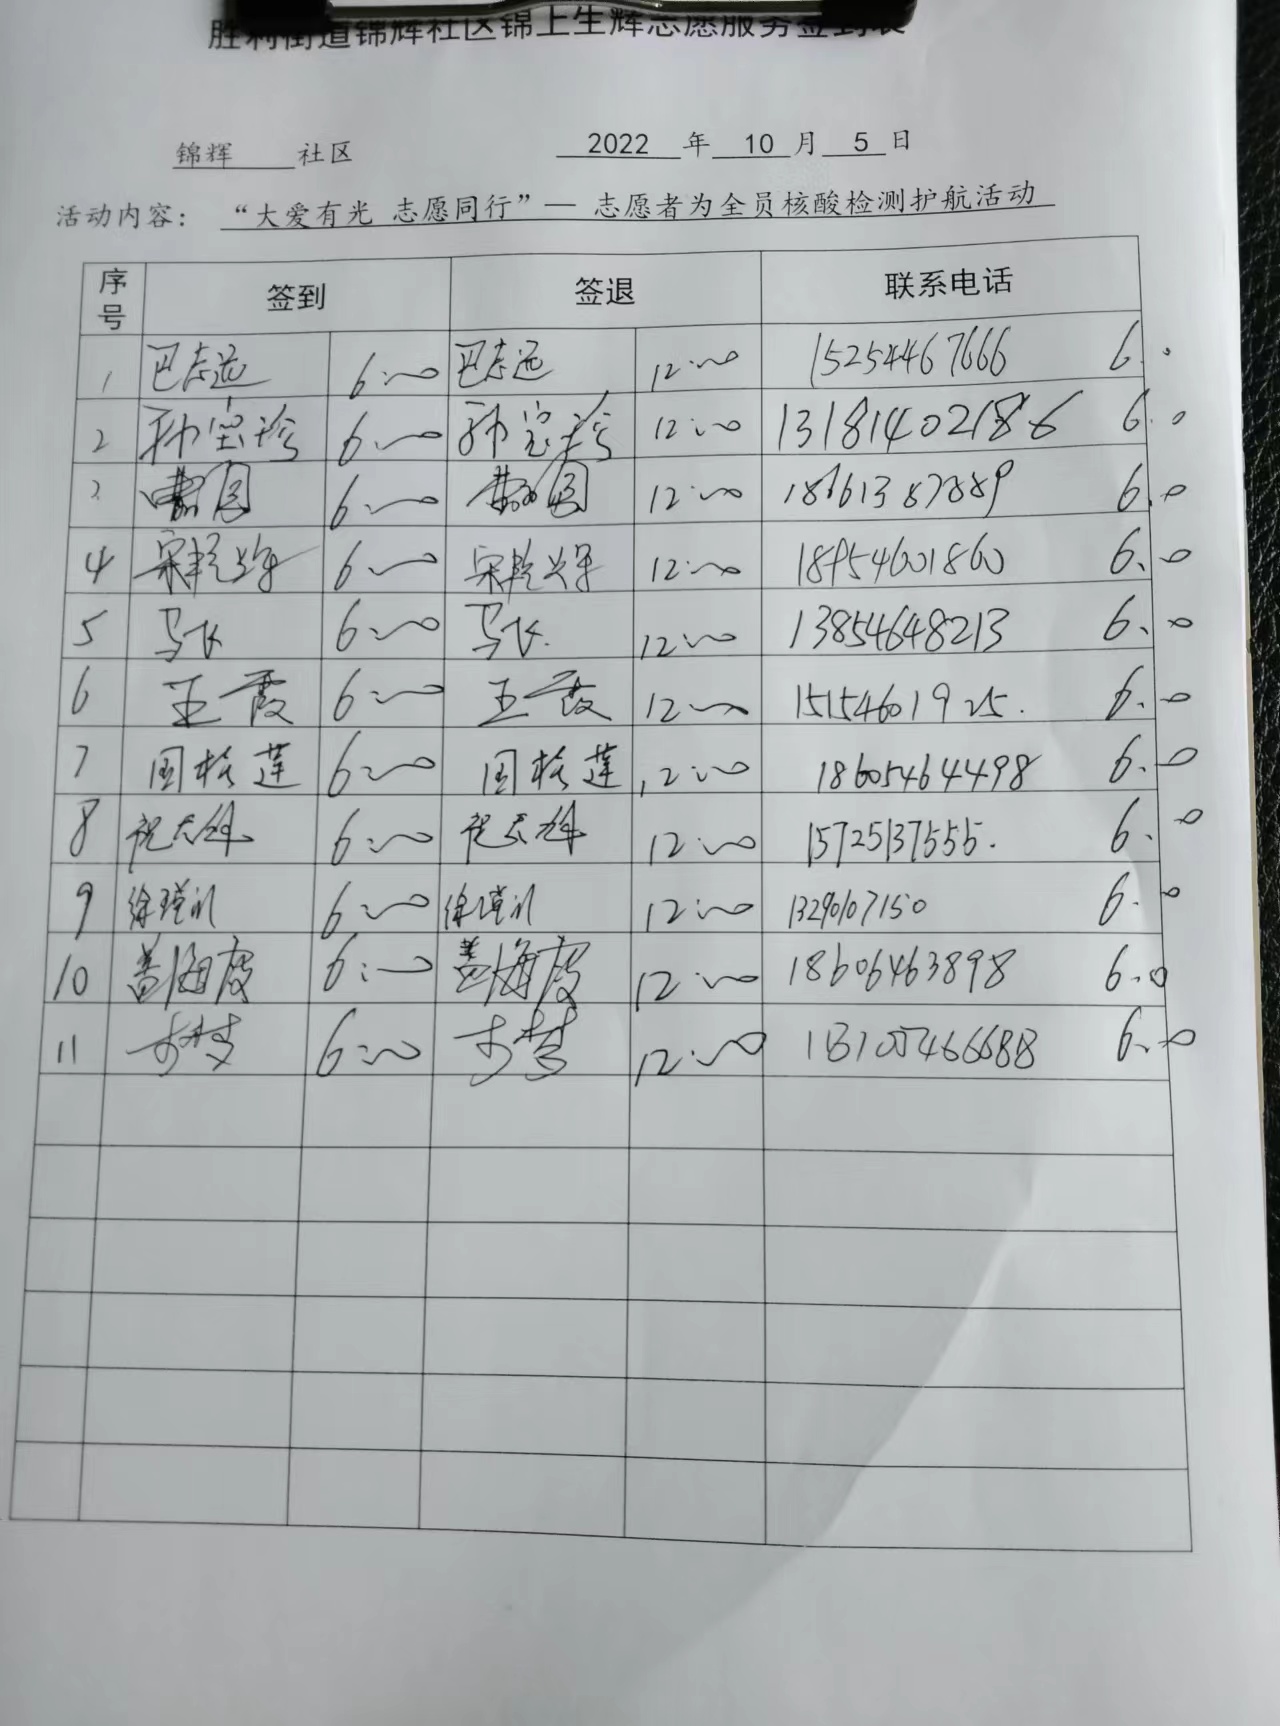 胜利街道锦辉社区锦上生辉志愿服务签到表
锦辉 社区 2022 年 10 月 5 日
活动内容： “大爱有光 志愿同行”— 志愿者为全员核酸检测护航活动
序号 签到 签退 联系电话
1 巴志远 6:00 巴志远 12:00 15254467666 6.0
2 孙宝珍 6:00 孙宝珍 12:00 6.0
3 6:00 12:00 18661387889 6.0
4 6:00 12:00 18954601860 6.0
5 马飞 6:00 马飞 12:00 13854648213 6.0
6 王霞 6:00 王霞 12:00 15154601925. 6.0
7 周格莲 6:00 周格莲 12:00 18605464498 6.0
8 6:00 12:00 15725137555. 6.0
9 6:00 12:00 6.0
10 盖海霞 6:00 盖海霞 12:00 18606463898 6.0
11 6:00 12:00 6.0